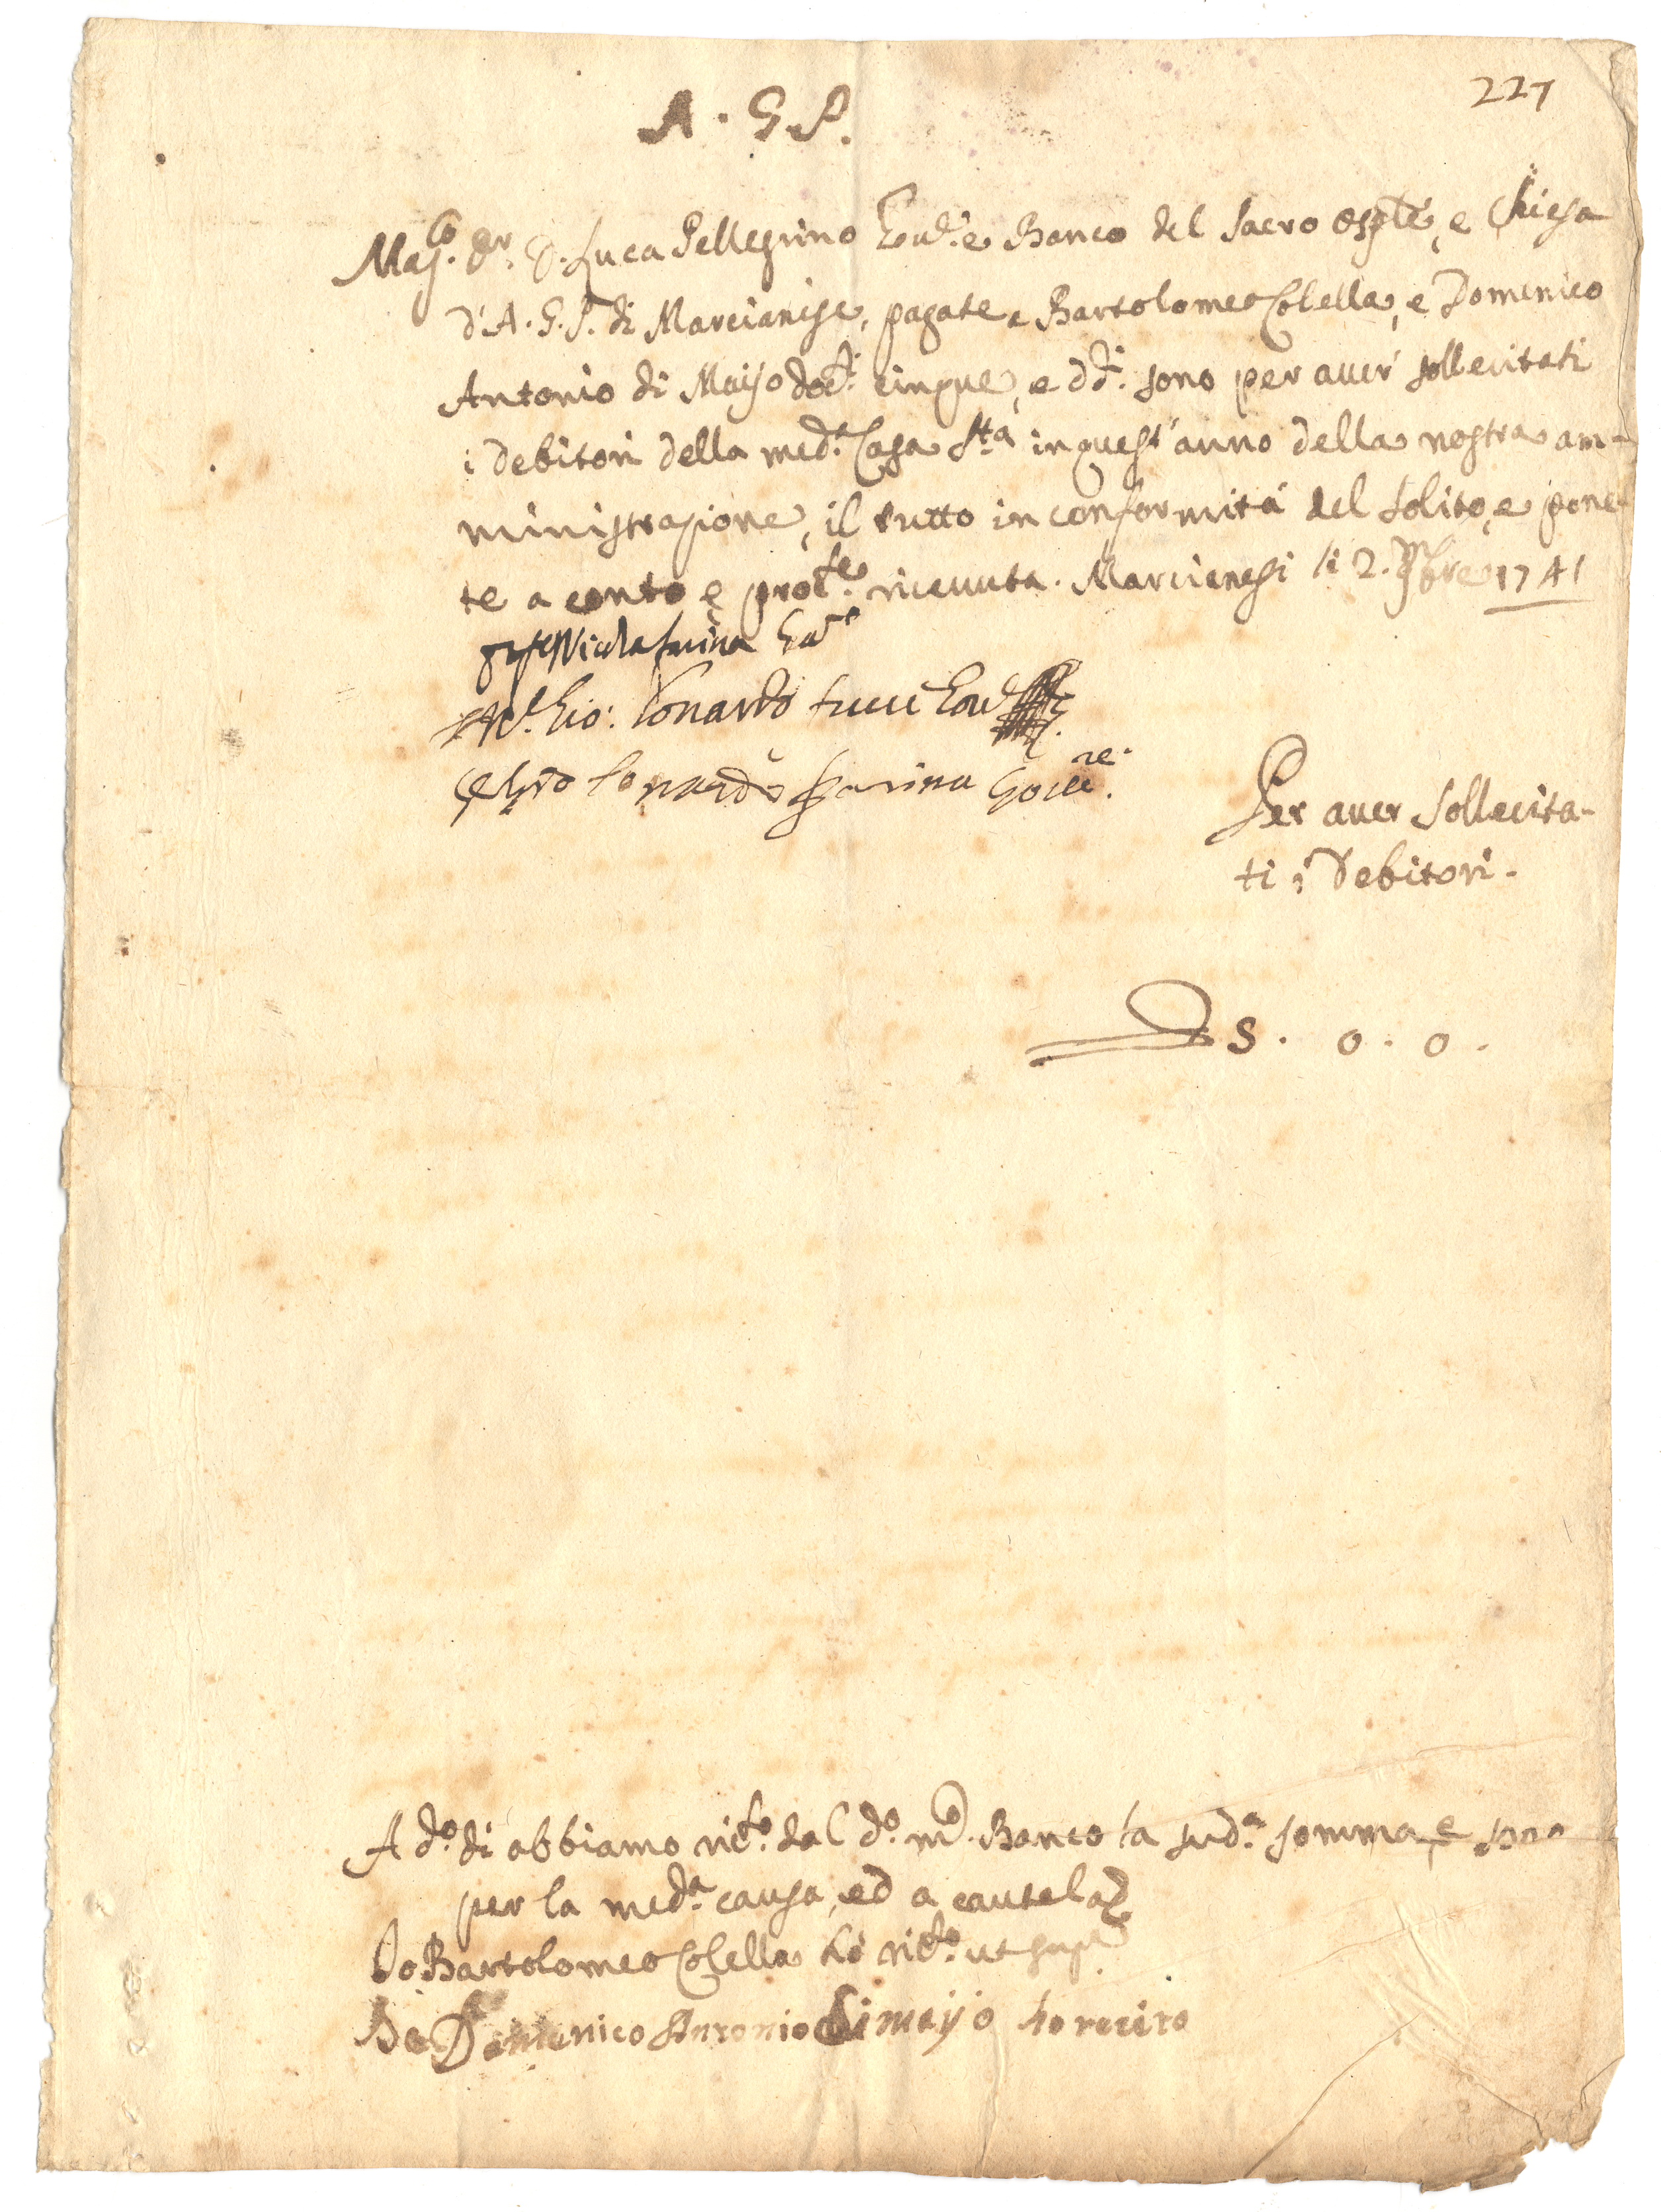 227
A. G. P.
Mag.co Sr. D. Luca Pellegrino Gov.e e Banco del Sacro Osp.le, e Chiesa
d'A. G. P. di Marcianise, pagate a Bartolomeo Colella, e Domenico
Antonio di Maijo doc.ti cinque, e d.ti sono per aver sollecitati
i debitori della med.a Casa S.ta in quest'anno della nostra am-
ministrazione, il tutto in conformità del solito, e pone-
te a conto e ricevuta. Marcianesi li 2. 9bre 1741
Nicola Farina Gov.e
Gio: Lonardo Tucci Gov.
Lonardo Farina Gov.re
Per aver sollecita-
ti i Debitori.
D 5. 0. 0.
A d.o dì abbiamo ric.to dal d.o m.co Banco la sud.a somma, e sono
per la med.a causa, ed a cautela
Io Bartolomeo Colella hò ric.to ut sup.a
Domenico Antonio di maijo ho recito